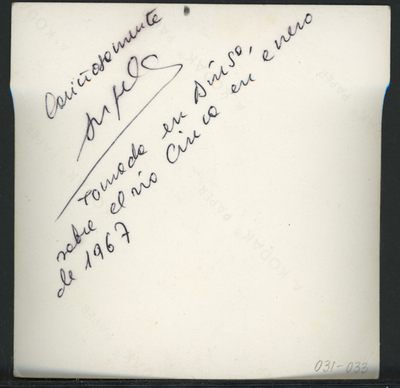 Cariñosamente
Angela
Tomada en Aínsa,
sobre el río Cinca en enero
de 1967
A KODAK PAPER
031-033